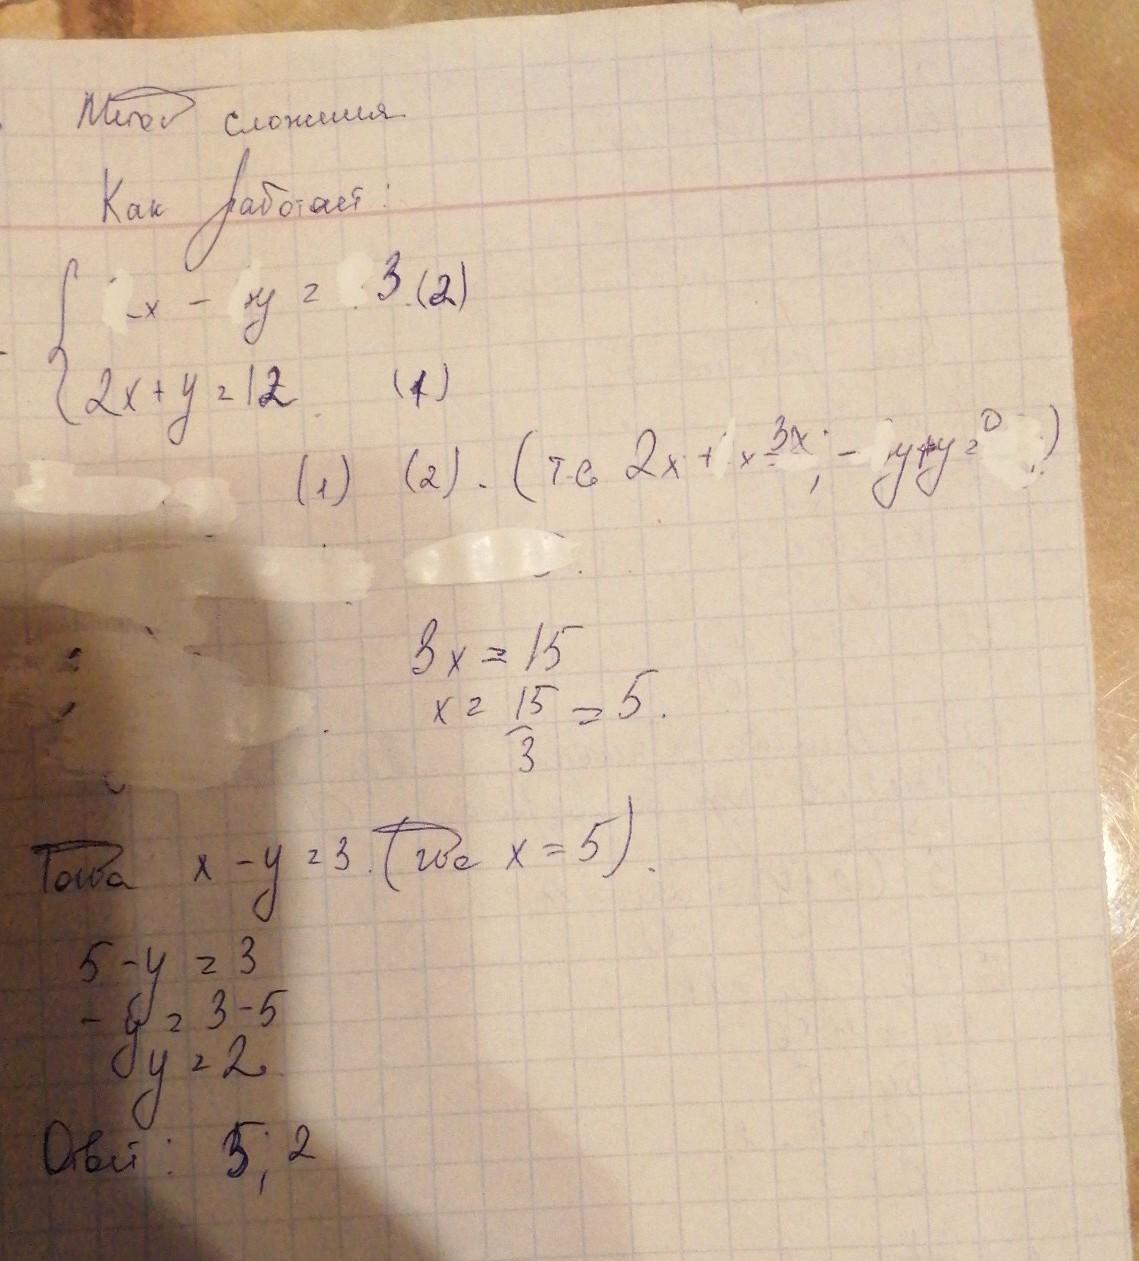 Метод сложения
Как работает:
x - y = 3 (2)
2x + y = 12 (1)
(1) (2). (т.е 2x + x = 3x; - y + y = 0)
3x = 15
x = 15/3 = 5.
Тогда x - y = 3. (где x = 5).
5 - y = 3
- y = 3 - 5
y = 2
Ответ: 5; 2